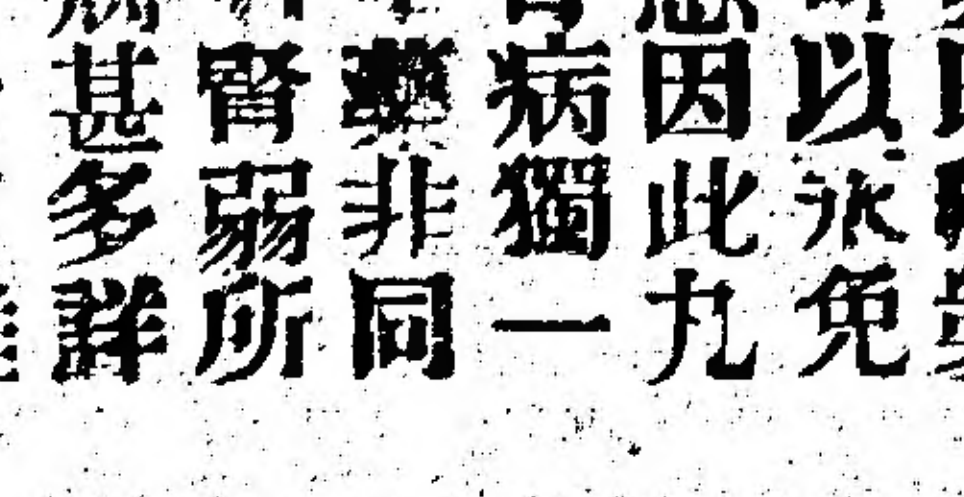 以永免
因此丸
病獨一
藥非同
腎弱所
甚多詳